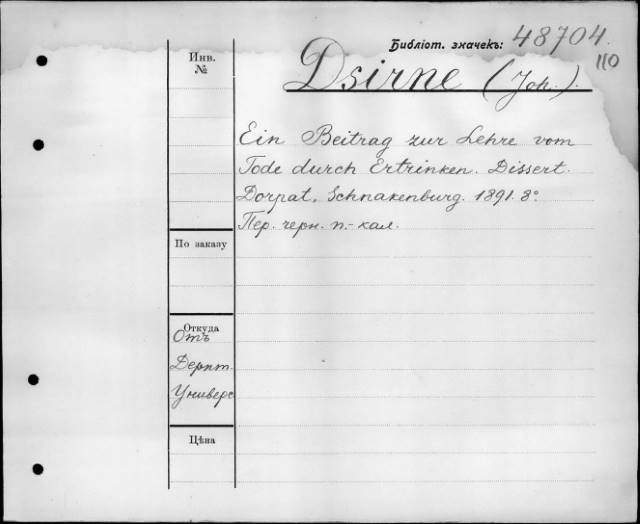 Библіот. значекъ: 48704.
110
Инв.
№
Dsirne (Joh.).
Ein Beitrag zur Lehre vom
Tode durch Ertrinken. Dissert.
Dorpat, Schnakenburg. 1891. 8°
Пер. черн. п.-кал.
По заказу
Откуда
Отъ
Дерпт.
Универс
Цѣна